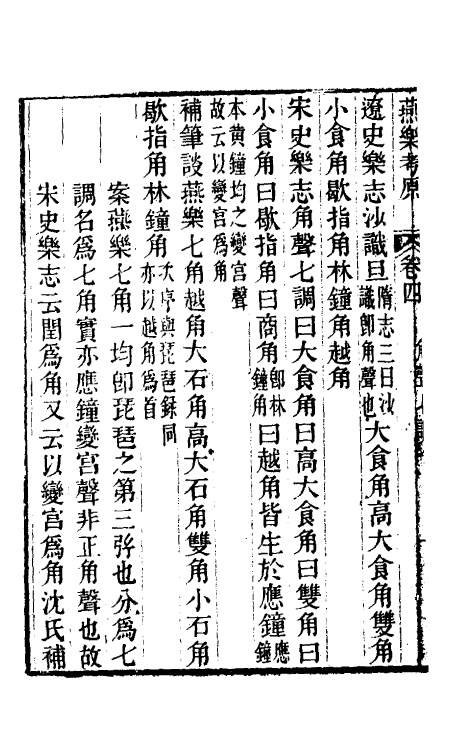 燕樂考原 卷四
遼史樂志沙識旦隋志三曰沙識卽角聲也大食角高大食角雙角
小食角歇指角林鐘角越角
宋史樂志角聲七調曰大食角曰高大食角曰雙角曰
小食角曰歇指角曰商角卽林鐘角曰越角皆生於應鐘應鐘
本黃鐘均之變宮聲故云以變宮爲角
補筆談燕樂七角越角大石角高大石角雙角小石角
歇指角林鐘角次序與琵琶錄同亦以越角爲首
案燕樂七角一均卽琵琶之第三弦也分爲七
調名爲七角實亦應鐘變宮聲非正角聲也故
宋史樂志云閏爲角又云以變宮爲角沈氏補